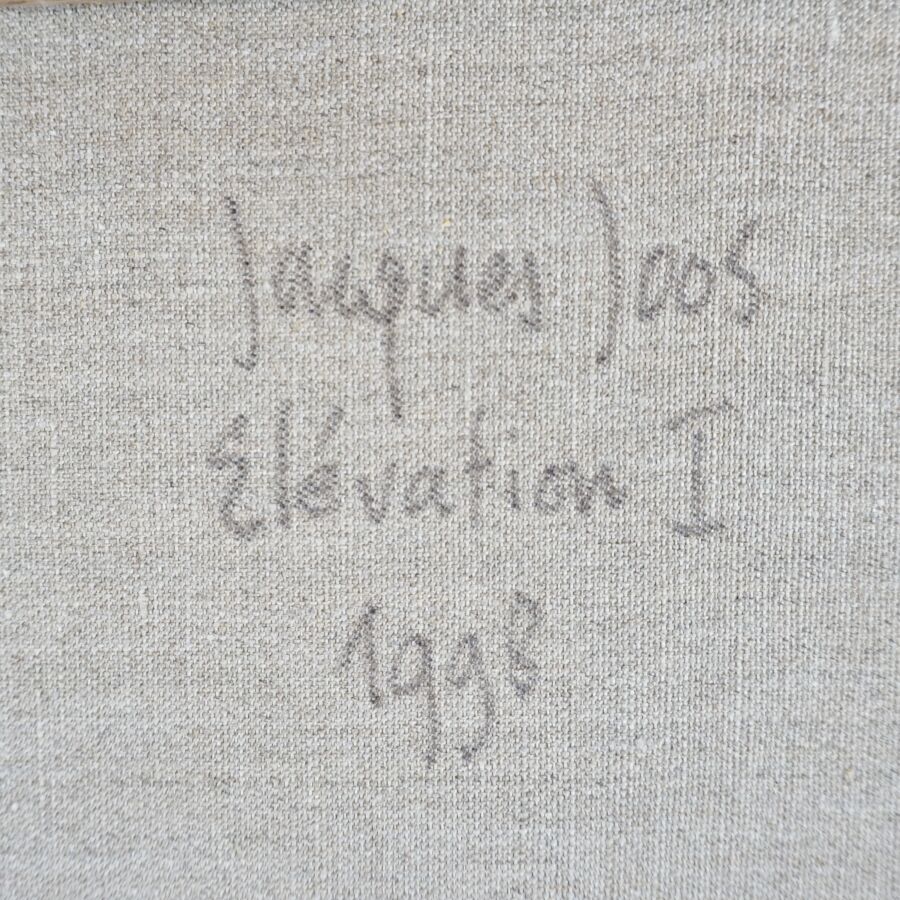 Jacques Joos
Elévation I
1998